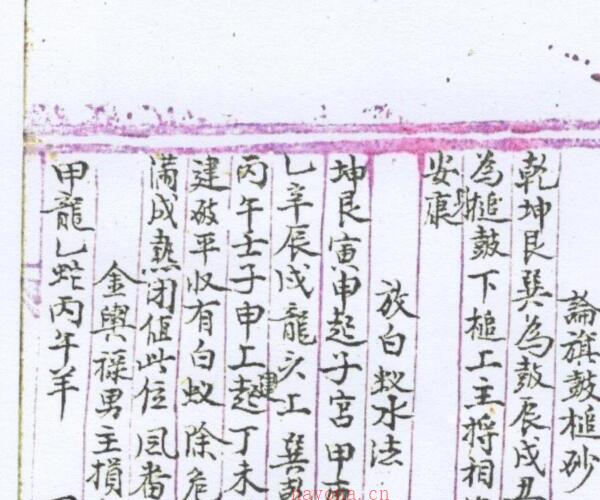 論旗鼓槌砂
乾坤艮巽為鼓辰戌丑
為槌鼓下槌工主将相
安康
放白蚁水法
坤艮寅申起子宮甲
乙辛辰戌龍六工巽
丙午壬子申上起建丁未
建破平收有白蚁除危
满成熱闭值此位凨
金輿祿男主損
甲龍乙蛇丙午羊
nayona.cn